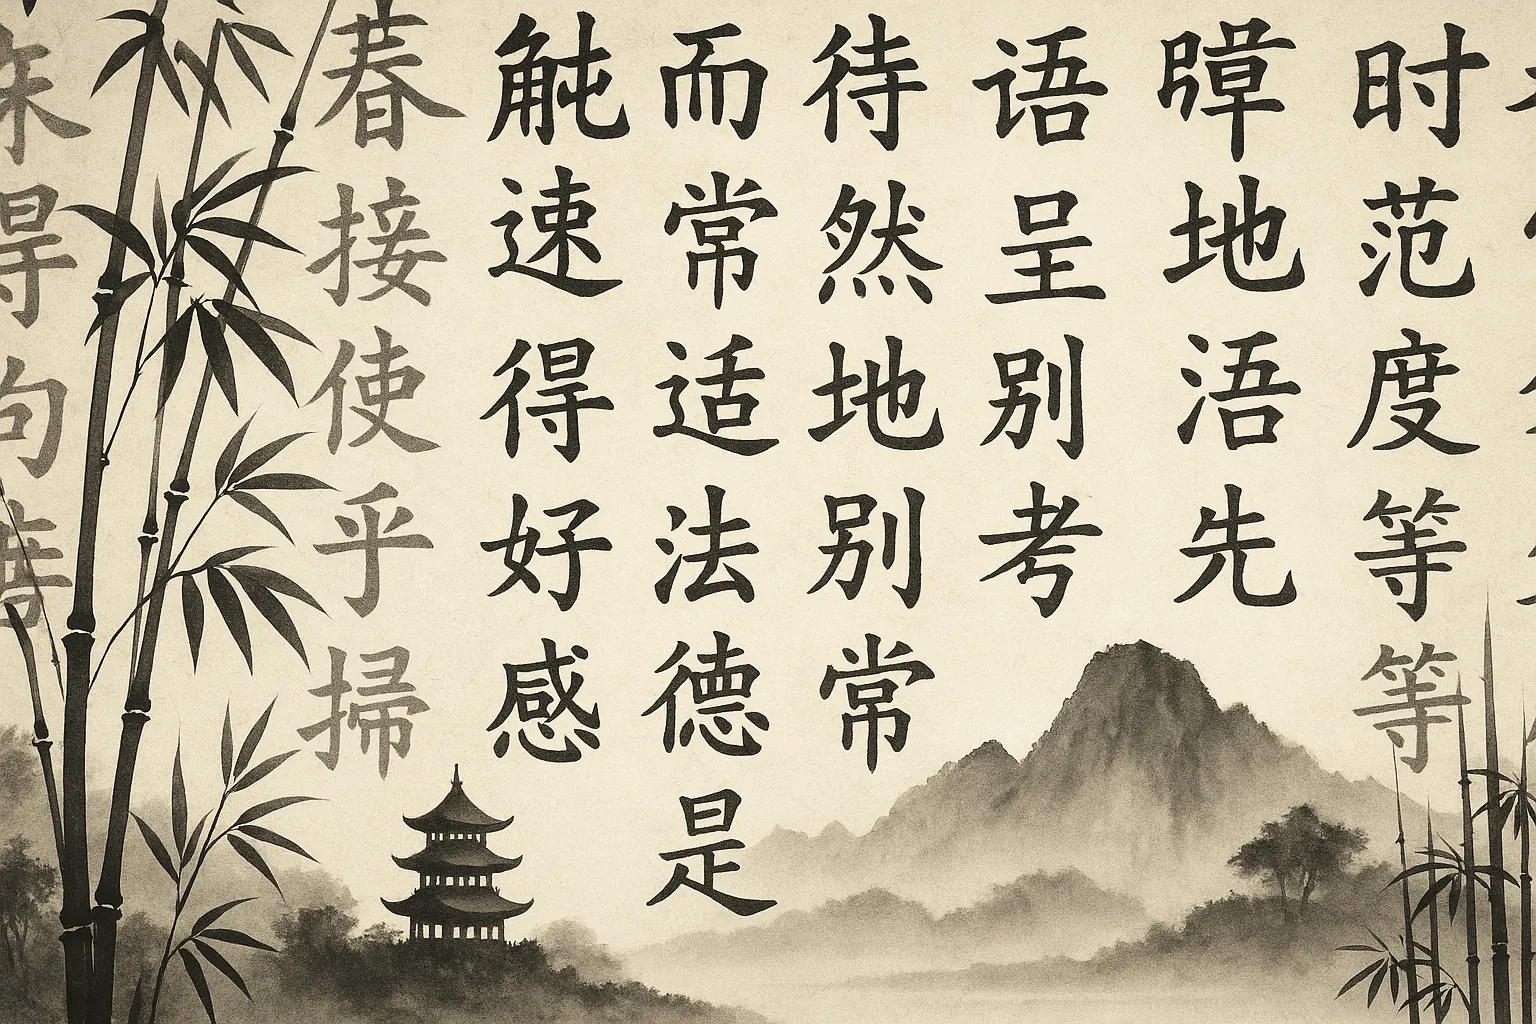 时范度等等
地浯先
语呈别考
待然地别常
而常适法德是
速得好感
接使乎掃